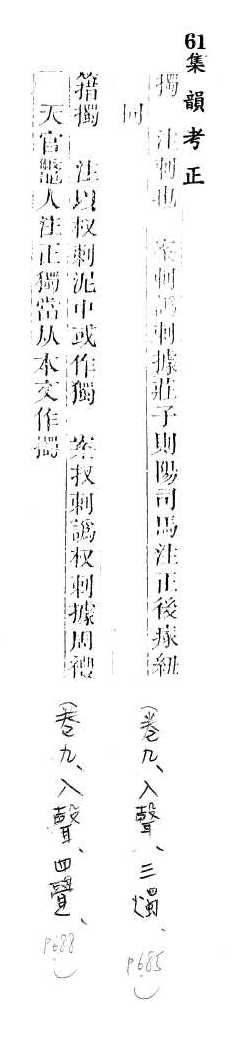 61集韻考正
擉 注刺也 案刺譌剌據莊子則陽司馬注正後瘃紐
同
籍擉 注以杈刺泥中或作獨 案扠刺譌杈刺據周禮
天官鼈人注正獨當从本文作擉
（卷九、入聲、三燭、p685）
（卷九、入聲、四覺、p688）